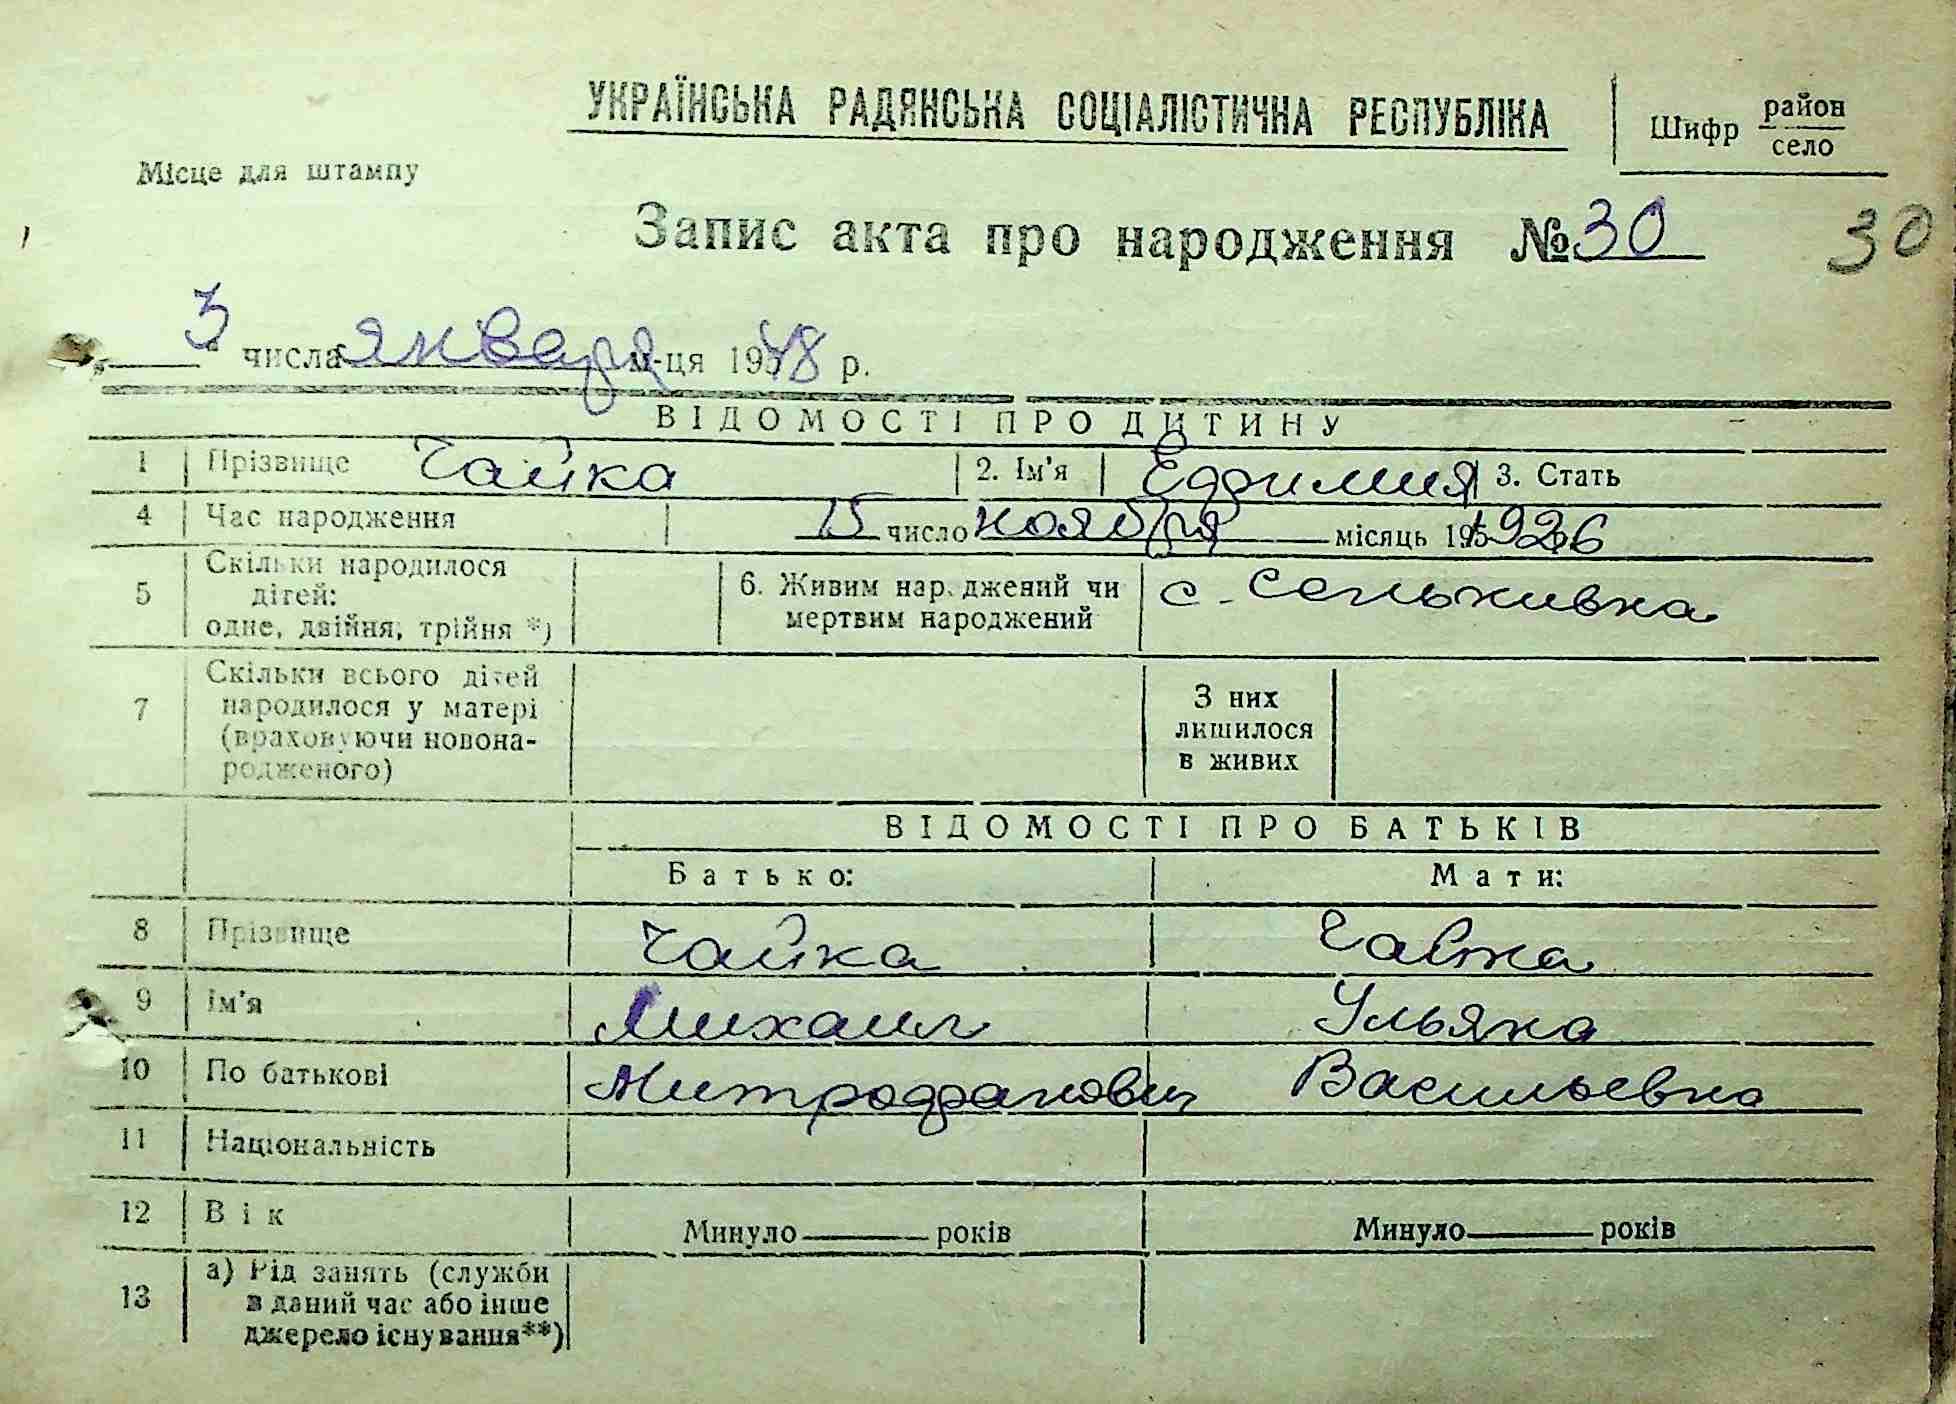 УКРАЇНСЬКА РАДЯНСЬКА СОЦІАЛІСТИЧНА РЕСПУБЛІКА
Шифр район
село
Місце для штампу
Запис акта про народження №30 30
3 числа января м-ця 1948 р.
ВІДОМОСТІ ПРО ДИТИНУ
1 Прізвище Чайка 2. Ім'я Ефимия 3. Стать
4 Час народження 15 число ноября місяць 1951926
5 Скільки народилося
дітей:
одне, двійня, трійня *)
6. Живим народжений чи
мертвим народжений
с. Сеньківка
7 Скільки всього дітей
народилося у матері
(враховуючи новона-
родженого)
З них
лишилося
в живих
ВІДОМОСТІ ПРО БАТЬКІВ
Батько: Мати:
8 Прізвище Чайка Чайка
9 Ім'я Михаил Ульяна
10 По батькові Митрофанович Васильевна
11 Національність
12 Вік Минуло років Минуло років
13 а) Рід занять (служби
в даний час або інше
джерело існування**)